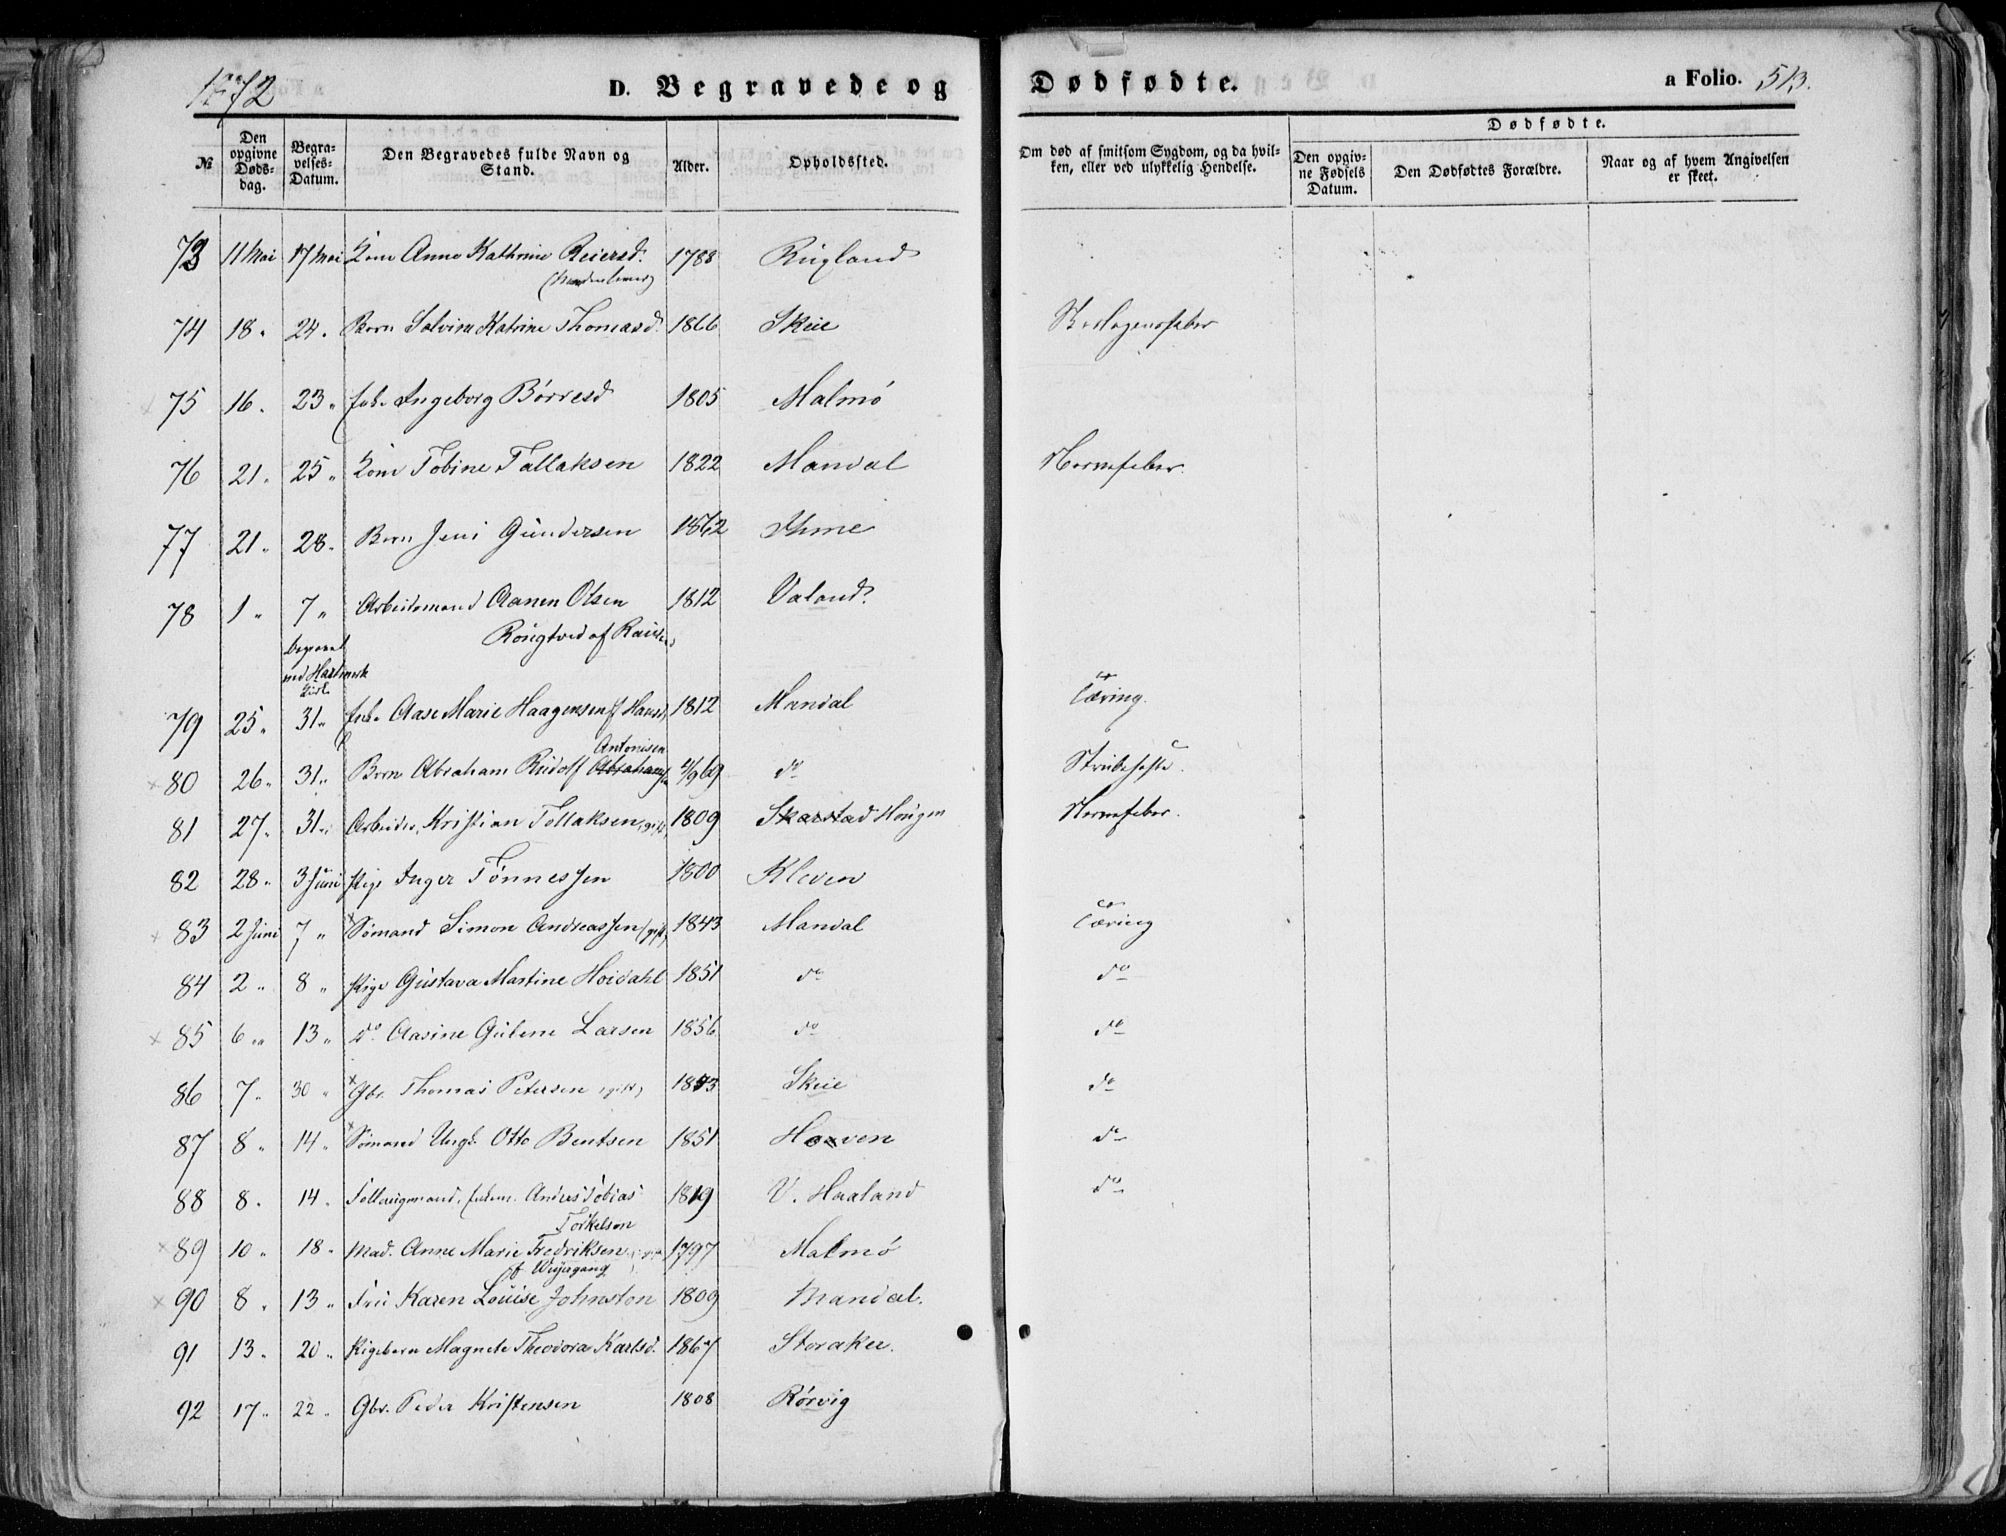 1872 D. Begravede og Dødfødte. a Folio. 513.
Dødfødte.
№ Den opgivne Dødsdag. Begravelses-Datum. Den Begravedes fulde Navn og Stand. Alder. Opholdssted. Om død af smitsom Sygdom, og da hvilken, eller ved ulykkelig Hendelse. Den opgivne Fødsels Datum. Den Dødfødtes Forældre. Naar og af hvem Angivelsen er skeet.
73 11 Mai 17 Mai Kone Anne Kathrine Reiersd. 1788 Rugland
74 18 " 24 " Barn Salvine Katrine Thomasd. 1866 Skeie Skarlagensfeber
75 16 " 23 " Enke Ingeborg Børresd 1805 Malmø
76 21 " 25 " Kone Tobine Tallaksen 1822 Mandal Nervefeber.
77 21 " 28 " Barn Jens Gundersen 1862 Ihme
78 1 " 7 " Arbeidsmand Aanen Olsen 1812 Valand.
begravet
ved Hartmark
Kirke
79 25 " 31 " Enke Aase Marie Haagensen f Hansd. 1812 Mandal Tæring.
Antonisen
80 26 " 31 " Barn Abraham Rudolf Abrahamsen 4/9 69 do Strubehoste.
81 27 " 31 " Arbeider, Kristian Tollaksen, gift 1809 Skarstad Hougen Nervefeber.
82 28 " 3 Juni Pige Inger Tønnessen 1800 Kleven
83 2 Juni 7 " Sømand Simon Andreassen (gift) 1843 Mandal Tæring
84 2 " 8 " Pige Gustava Martine Hoidahl 1851 do do
85 6 " 13 " do Aasine Guline Larsen 1856 do do
86 7 " 30 " Gbr. Thomas Petersen (gift) 1843 Skeie do
87 8 " 14 " Sømand Ungk. Otto Bentsen 1851 Haven do
88 8 " 14 " Føllaugsmand, Enkem. Andres Tobias 1819 V. Haaland do
Torkelsen
89 10 " 18 " Mad. Anne Marie Fredriksen 1797 Malmø
f. Weyergang
90 8 " 13 " Fru Karen Louise Johnston 1809 Mandal.
91 13 " 20 " Pigebarn Magnete Theodora Karlsd. 1867 Storaker.
92 17 " 22 " Gbr. Peder Kristensen 1808 Rørvig